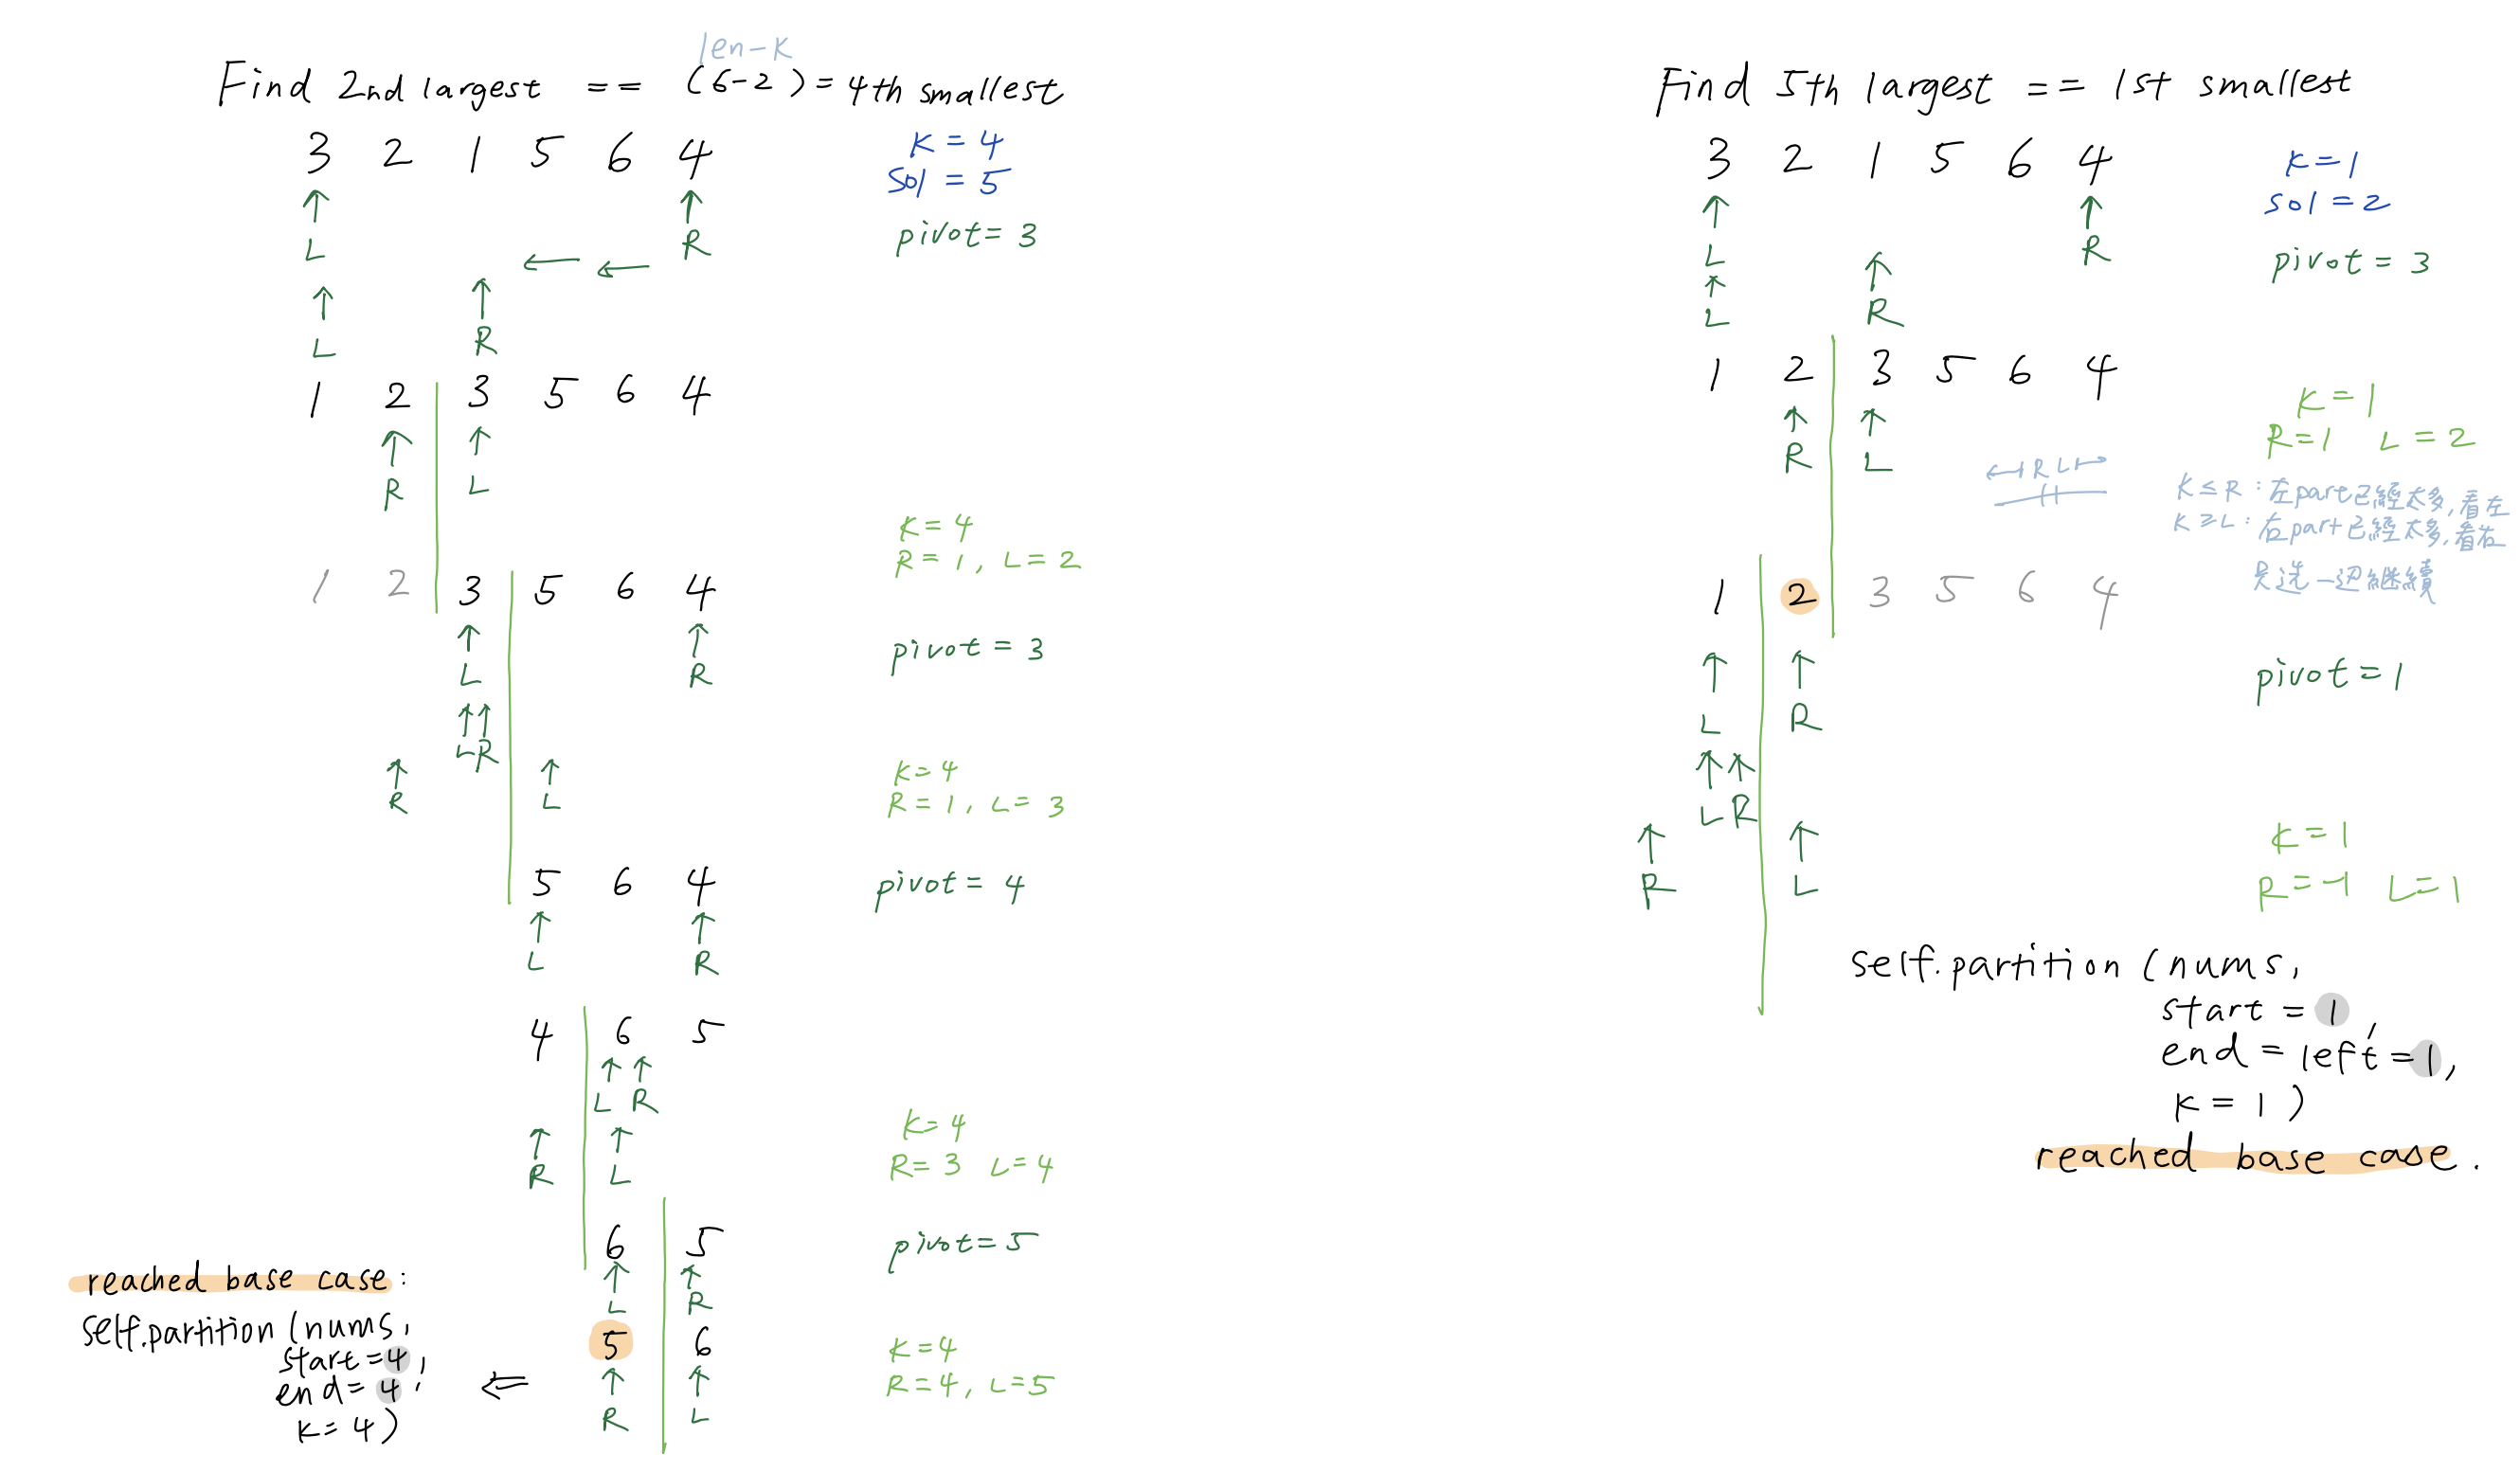 len-K
Find 2nd largest == (6-2)=4th smallest
3 2 1 5 6 4
K = 4
sol = 5
↑ ↑
L R
pivot = 3
← ←
↑ ↑
L R
1 2 3 5 6 4
↑ ↑
R L
K = 4
R = 1, L = 2
1 2 3 5 6 4
↑ ↑
L R
pivot = 3
↑↑
LR
↑ ↑
R L
K = 4
R = 1, L = 3
5 6 4
pivot = 4
↑ ↑
L R
4 6 5
↑ ↑
L R
↑ ↑
R L
K = 4
R = 3 L = 4
6 5
pivot = 5
↑ ↑
L R
5 6
↑ ↑
R L
K = 4
R = 4, L = 5
⇐
reached base case:
self.partition (nums,
start = 4,
end = 4,
K = 4)
Find 5th largest == 1st smallest
3 2 1 5 6 4
K = 1
sol = 2
↑ ↑
L R
pivot = 3
↑ ↑
L R
1 2 3 5 6 4
↑ ↑
R L
K = 1
R = 1 L = 2
R L
K ≤ R : 左part已經太多,看左
K ≥ L : 右part已經太多,看右
選一边繼續
1 2 3 5 6 4
↑ ↑
L R
pivot = 1
↑ ↑
L R
↑ ↑
R L
K = 1
R = -1 L = 1
self.partition (nums,
start = 1,
end = left = 1,
K = 1)
reached base case.